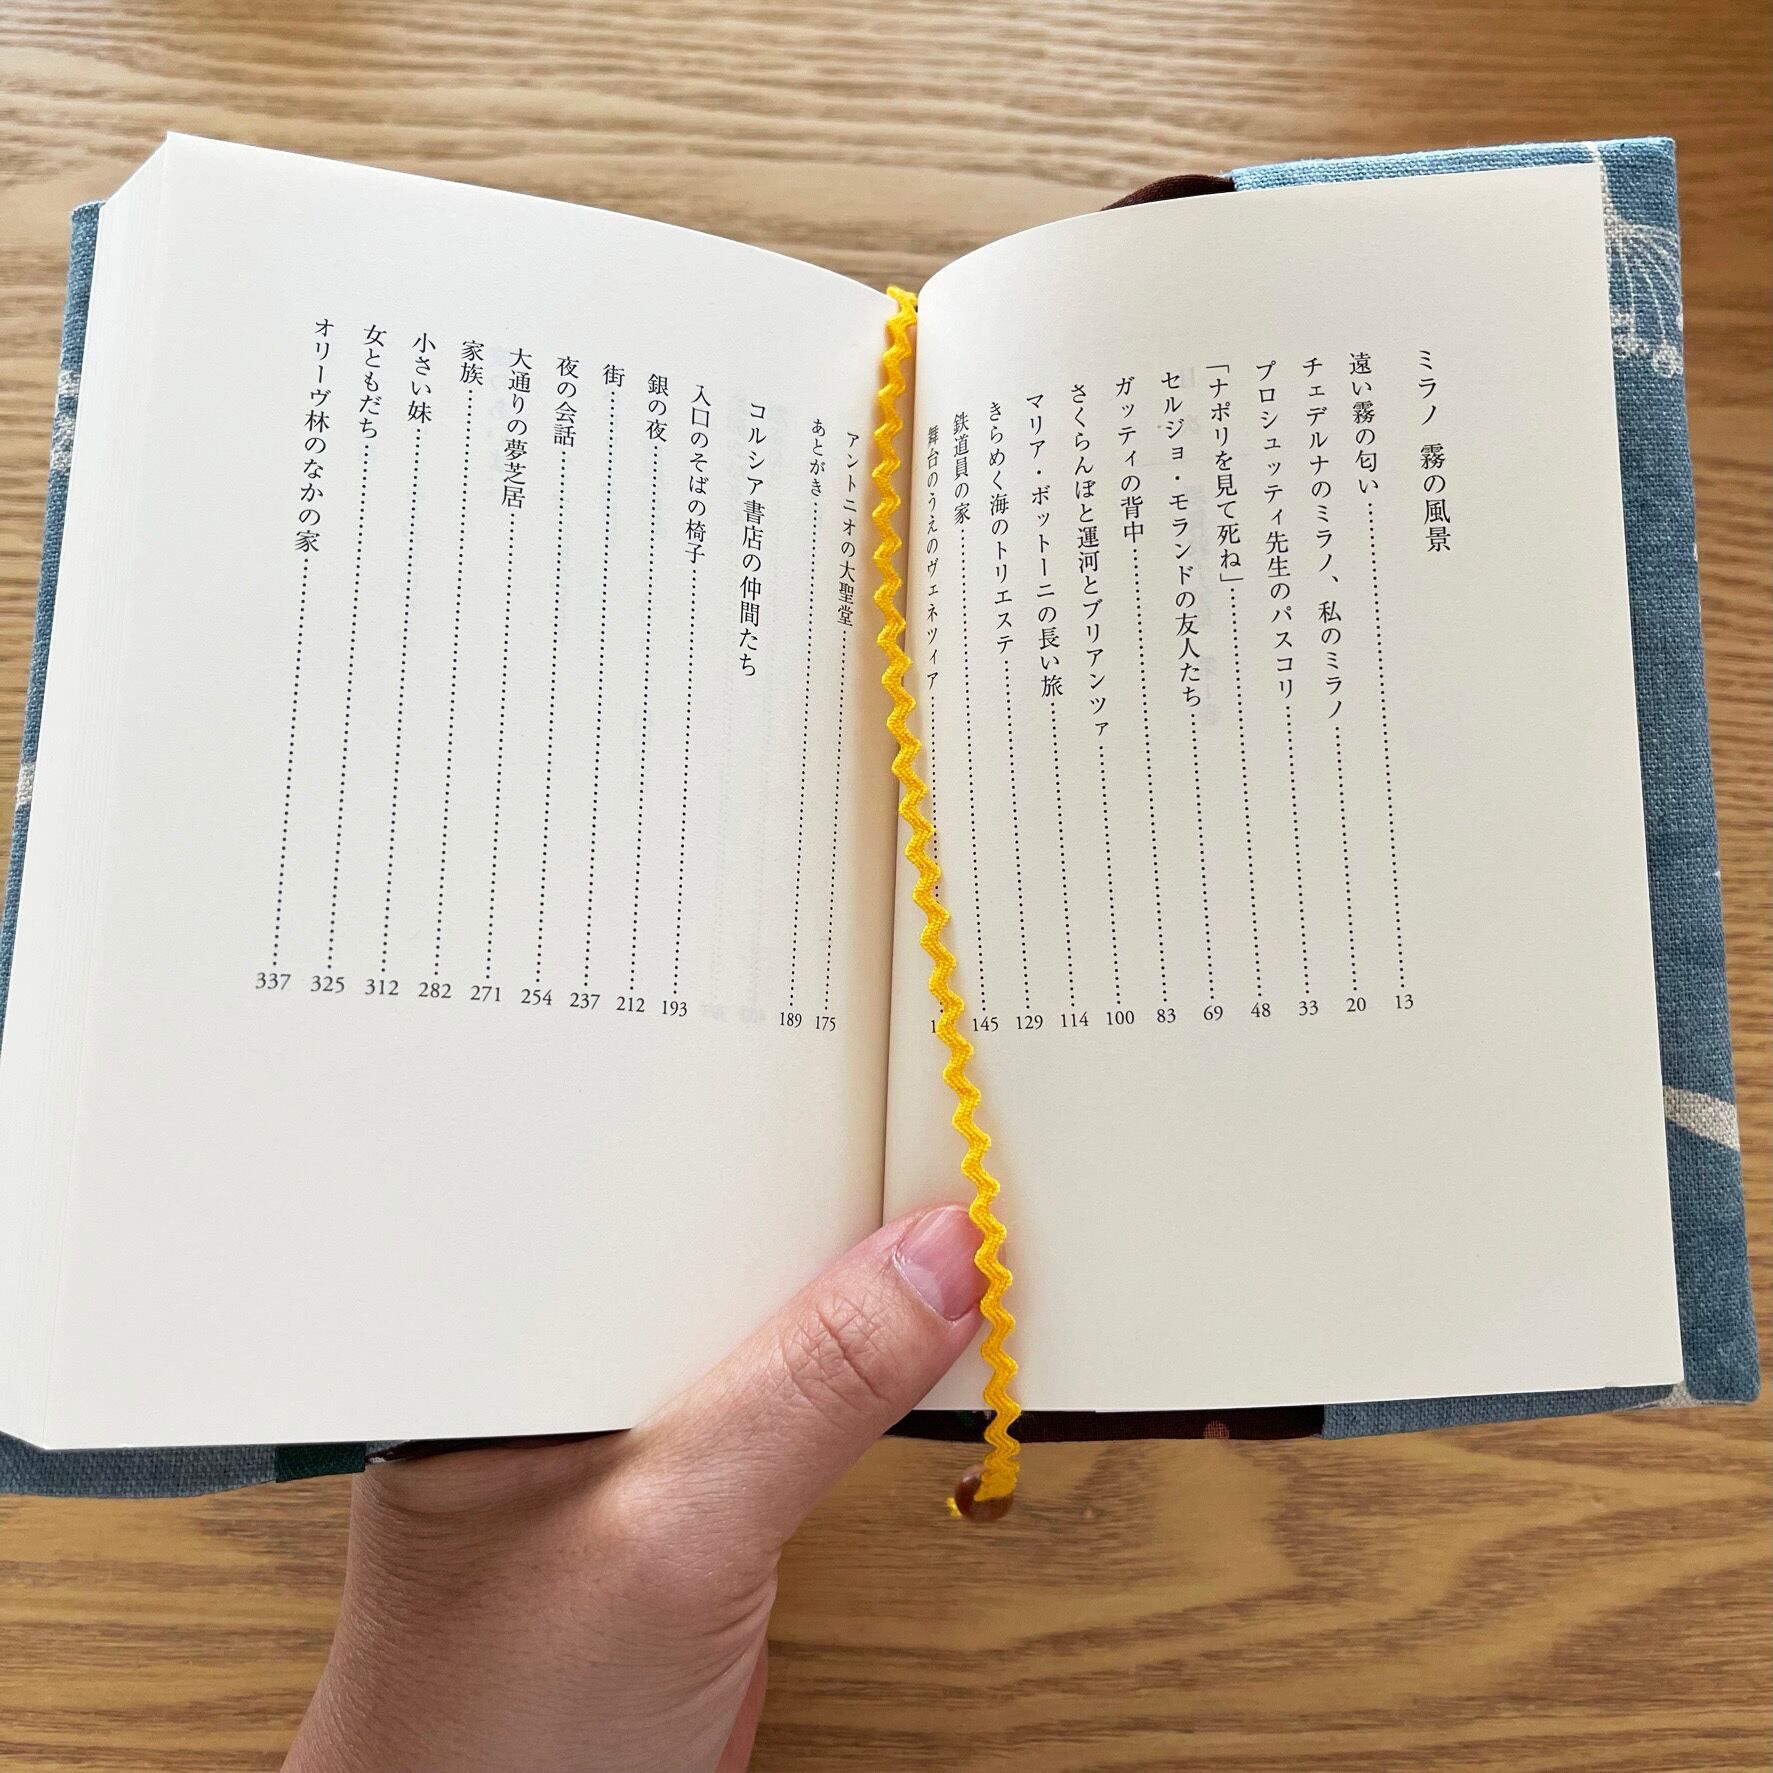 ミラノ 霧の風景
遠い霧の匂い……13
チェデルナのミラノ、私のミラノ……20
プロシュッティ先生のパスコリ……33
「ナポリを見て死ね」……48
セルジョ・モランドの友人たち……69
ガッティの背中……83
さくらんぼと運河とブリアンツァ……100
マリア・ボットーニの長い旅……114
きらめく海のトリエステ……129
鉄道員の家……145
舞台のうえのヴェネツィア……
アントニオの大聖堂……175
あとがき……189
コルシア書店の仲間たち
入口のそばの椅子……193
銀の夜……212
街……237
夜の会話……254
大通りの夢芝居……271
家族……282
小さい妹……312
女ともだち……325
オリーヴ林のなかの家……337